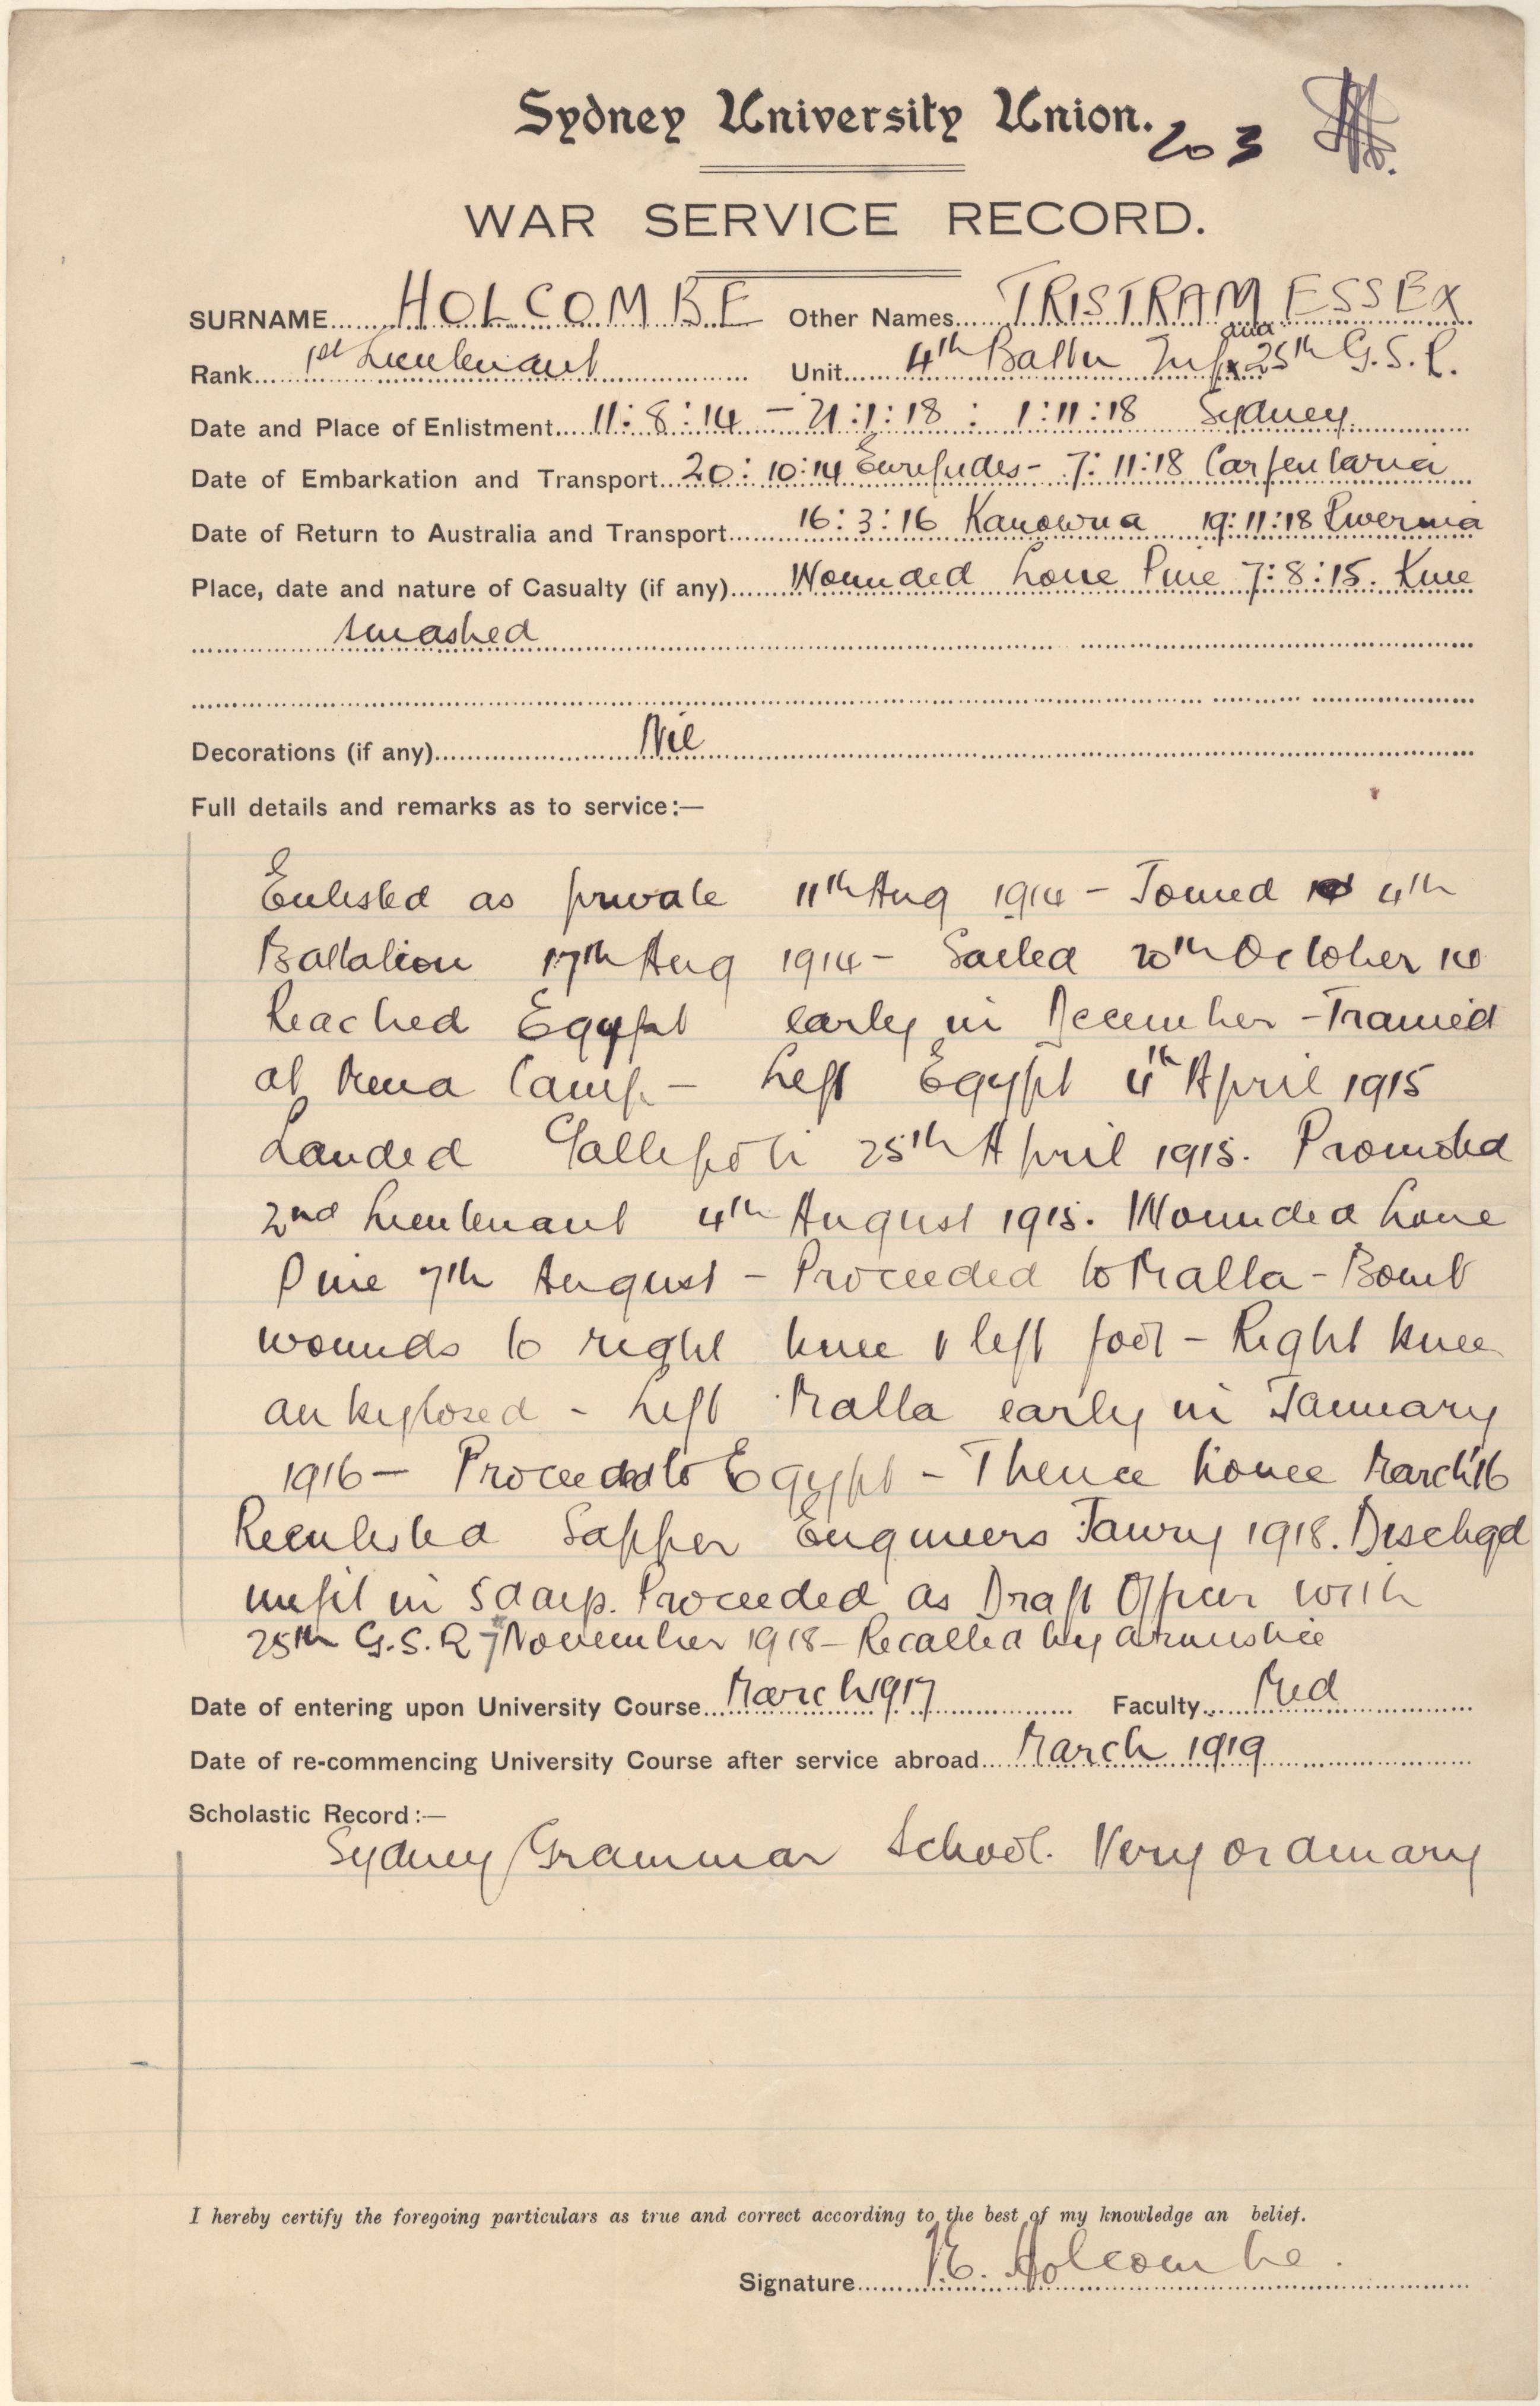 Sydney University Union.
203
WAR SERVICE RECORD.
SURNAME HOLCOMBE Other Names TRISTRAM ESSEX
Rank 1st Lieutenant Unit 4th Battn Inf and 25th G.S.R.
Date and Place of Enlistment 11:8:14 – 21:1:18 : 1:11:18 Sydney
Date of Embarkation and Transport 20:10:14 Euripides – 7:11:18 Carpentaria
Date of Return to Australia and Transport 16:3:16 Kanowna 19:11:18 Riverina
Place, date and nature of Casualty (if any) Wounded Lone Pine 7:8:15. Knee
smashed
Decorations (if any) Nil
Full details and remarks as to service:—
Enlisted as private 11th Aug 1914 – Joined 4th
Battalion 17th Aug 1914 – Sailed 20th October 14
Reached Egypt early in December – Trained
at Mena Camp – Left Egypt 4th April 1915
Landed Gallipoli 25th April 1915. Promoted
2nd Lieutenant 4th August 1915. Wounded Lone
Pine 7th August – Proceeded to Malta – Bomb
wounds to right knee & left foot – Right knee
ankylosed – Left Malta early in January
1916 – Proceeded to Egypt – Thence home March '16
Reenlisted Sapper Engineers Janry 1918. Dischgd
unfit in 5 days. Proceeded as Draft Officer with
25th G.S.R 7 November 1918 – Recalled by armistice
Date of entering upon University Course March 1917 Faculty Med
Date of re-commencing University Course after service abroad March 1919
Scholastic Record:—
Sydney Grammar School. Very ordinary
I hereby certify the foregoing particulars as true and correct according to the best of my knowledge an belief.
Signature T.E. Holcombe.